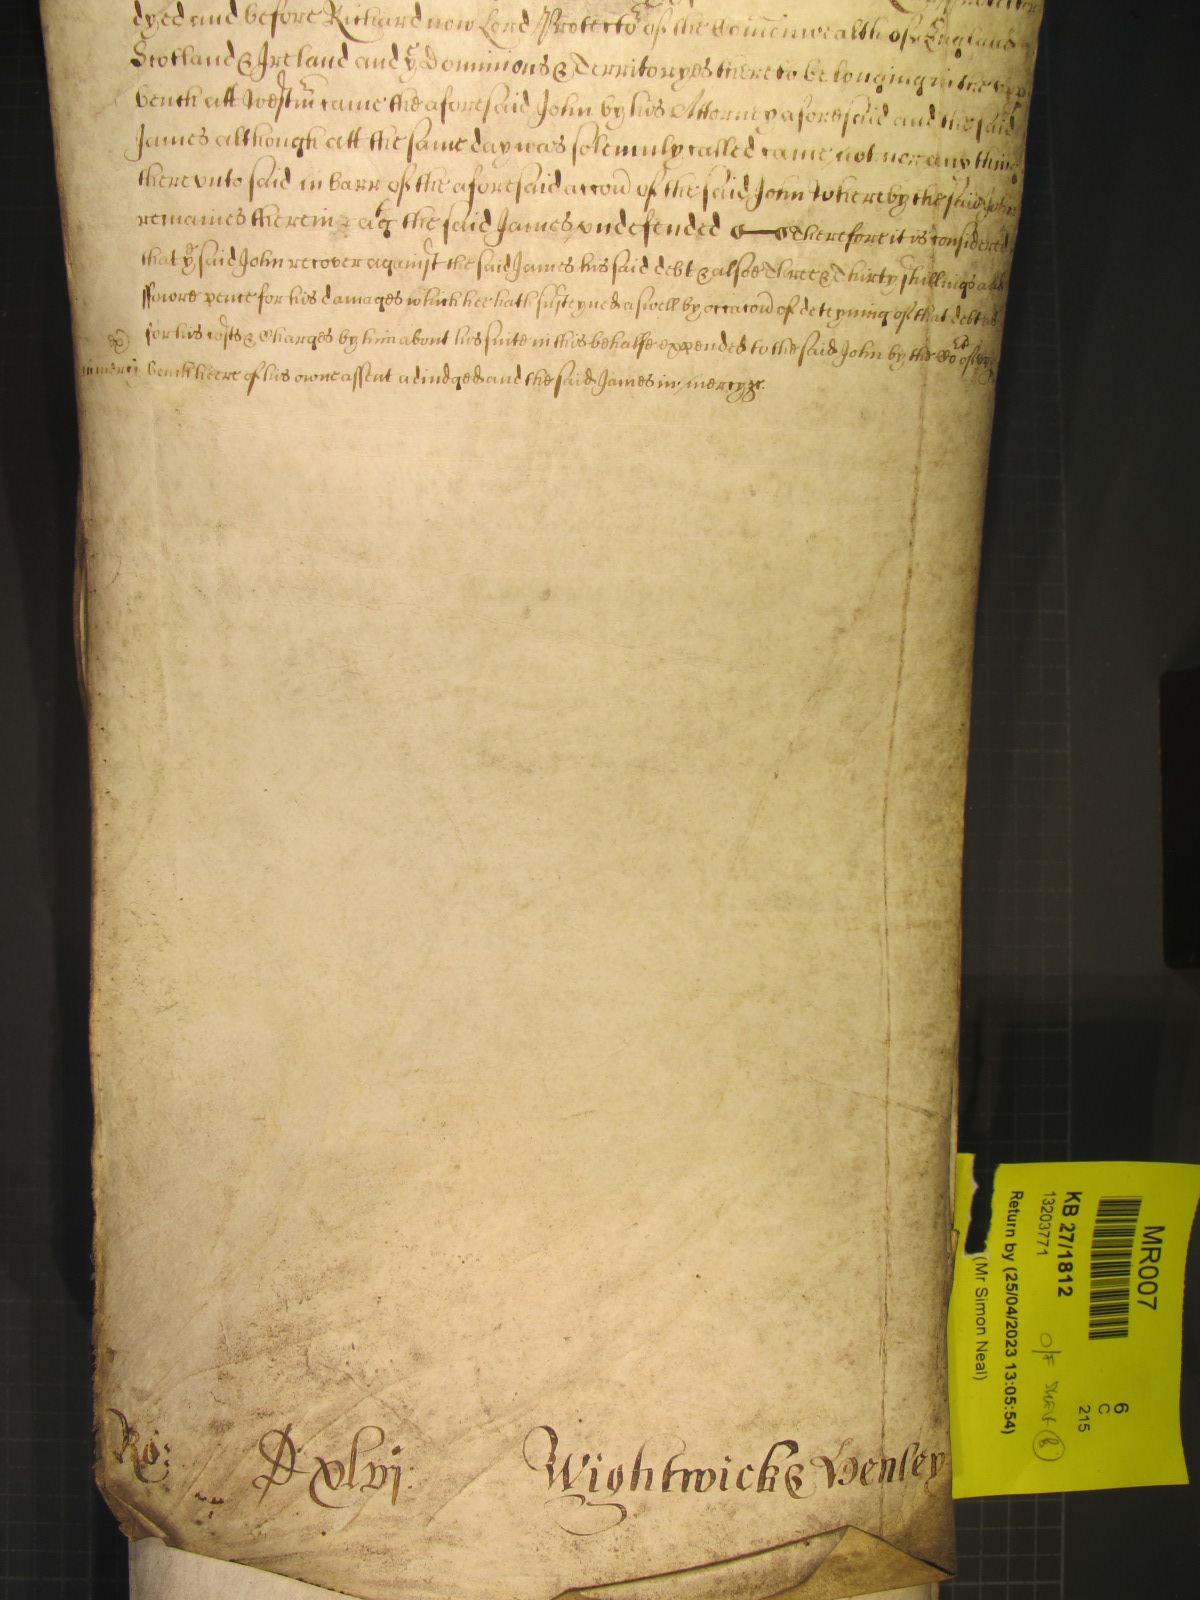 dyed and before Richard now Lord Protector of the Comonwealth of England
Scotland & Ireland and ye Dominions & Territoryes thereto belonging in the upp
bench att Westm came the aforesaid John by his Attorney aforesaid and the said
James although att the same day was solemnly called came not nor any thing
therevnto said in barr of the aforesaid accon of the said John Whereby the said John
remaines therein agt the said James vndefended Therefore it is considered
that ye said John recover against the said James his said debt & alsoe Three & Thirty shillings and
ffowre pence for his damages which hee hath susteyned aswell by occacon of deteyning of that debt as
for his costs & Charges by him about his suite in this behalfe expended to the said John by the Co
in mercy bench heere of his owne assent adiudged and the said James in mercy &c.
Ro: Dxlvj Wightwick & Henley
MR007
KB 27/1812
13203771
Return by (25/04/2023 13:05:54)
(Mr Simon Neal)
6
C
215